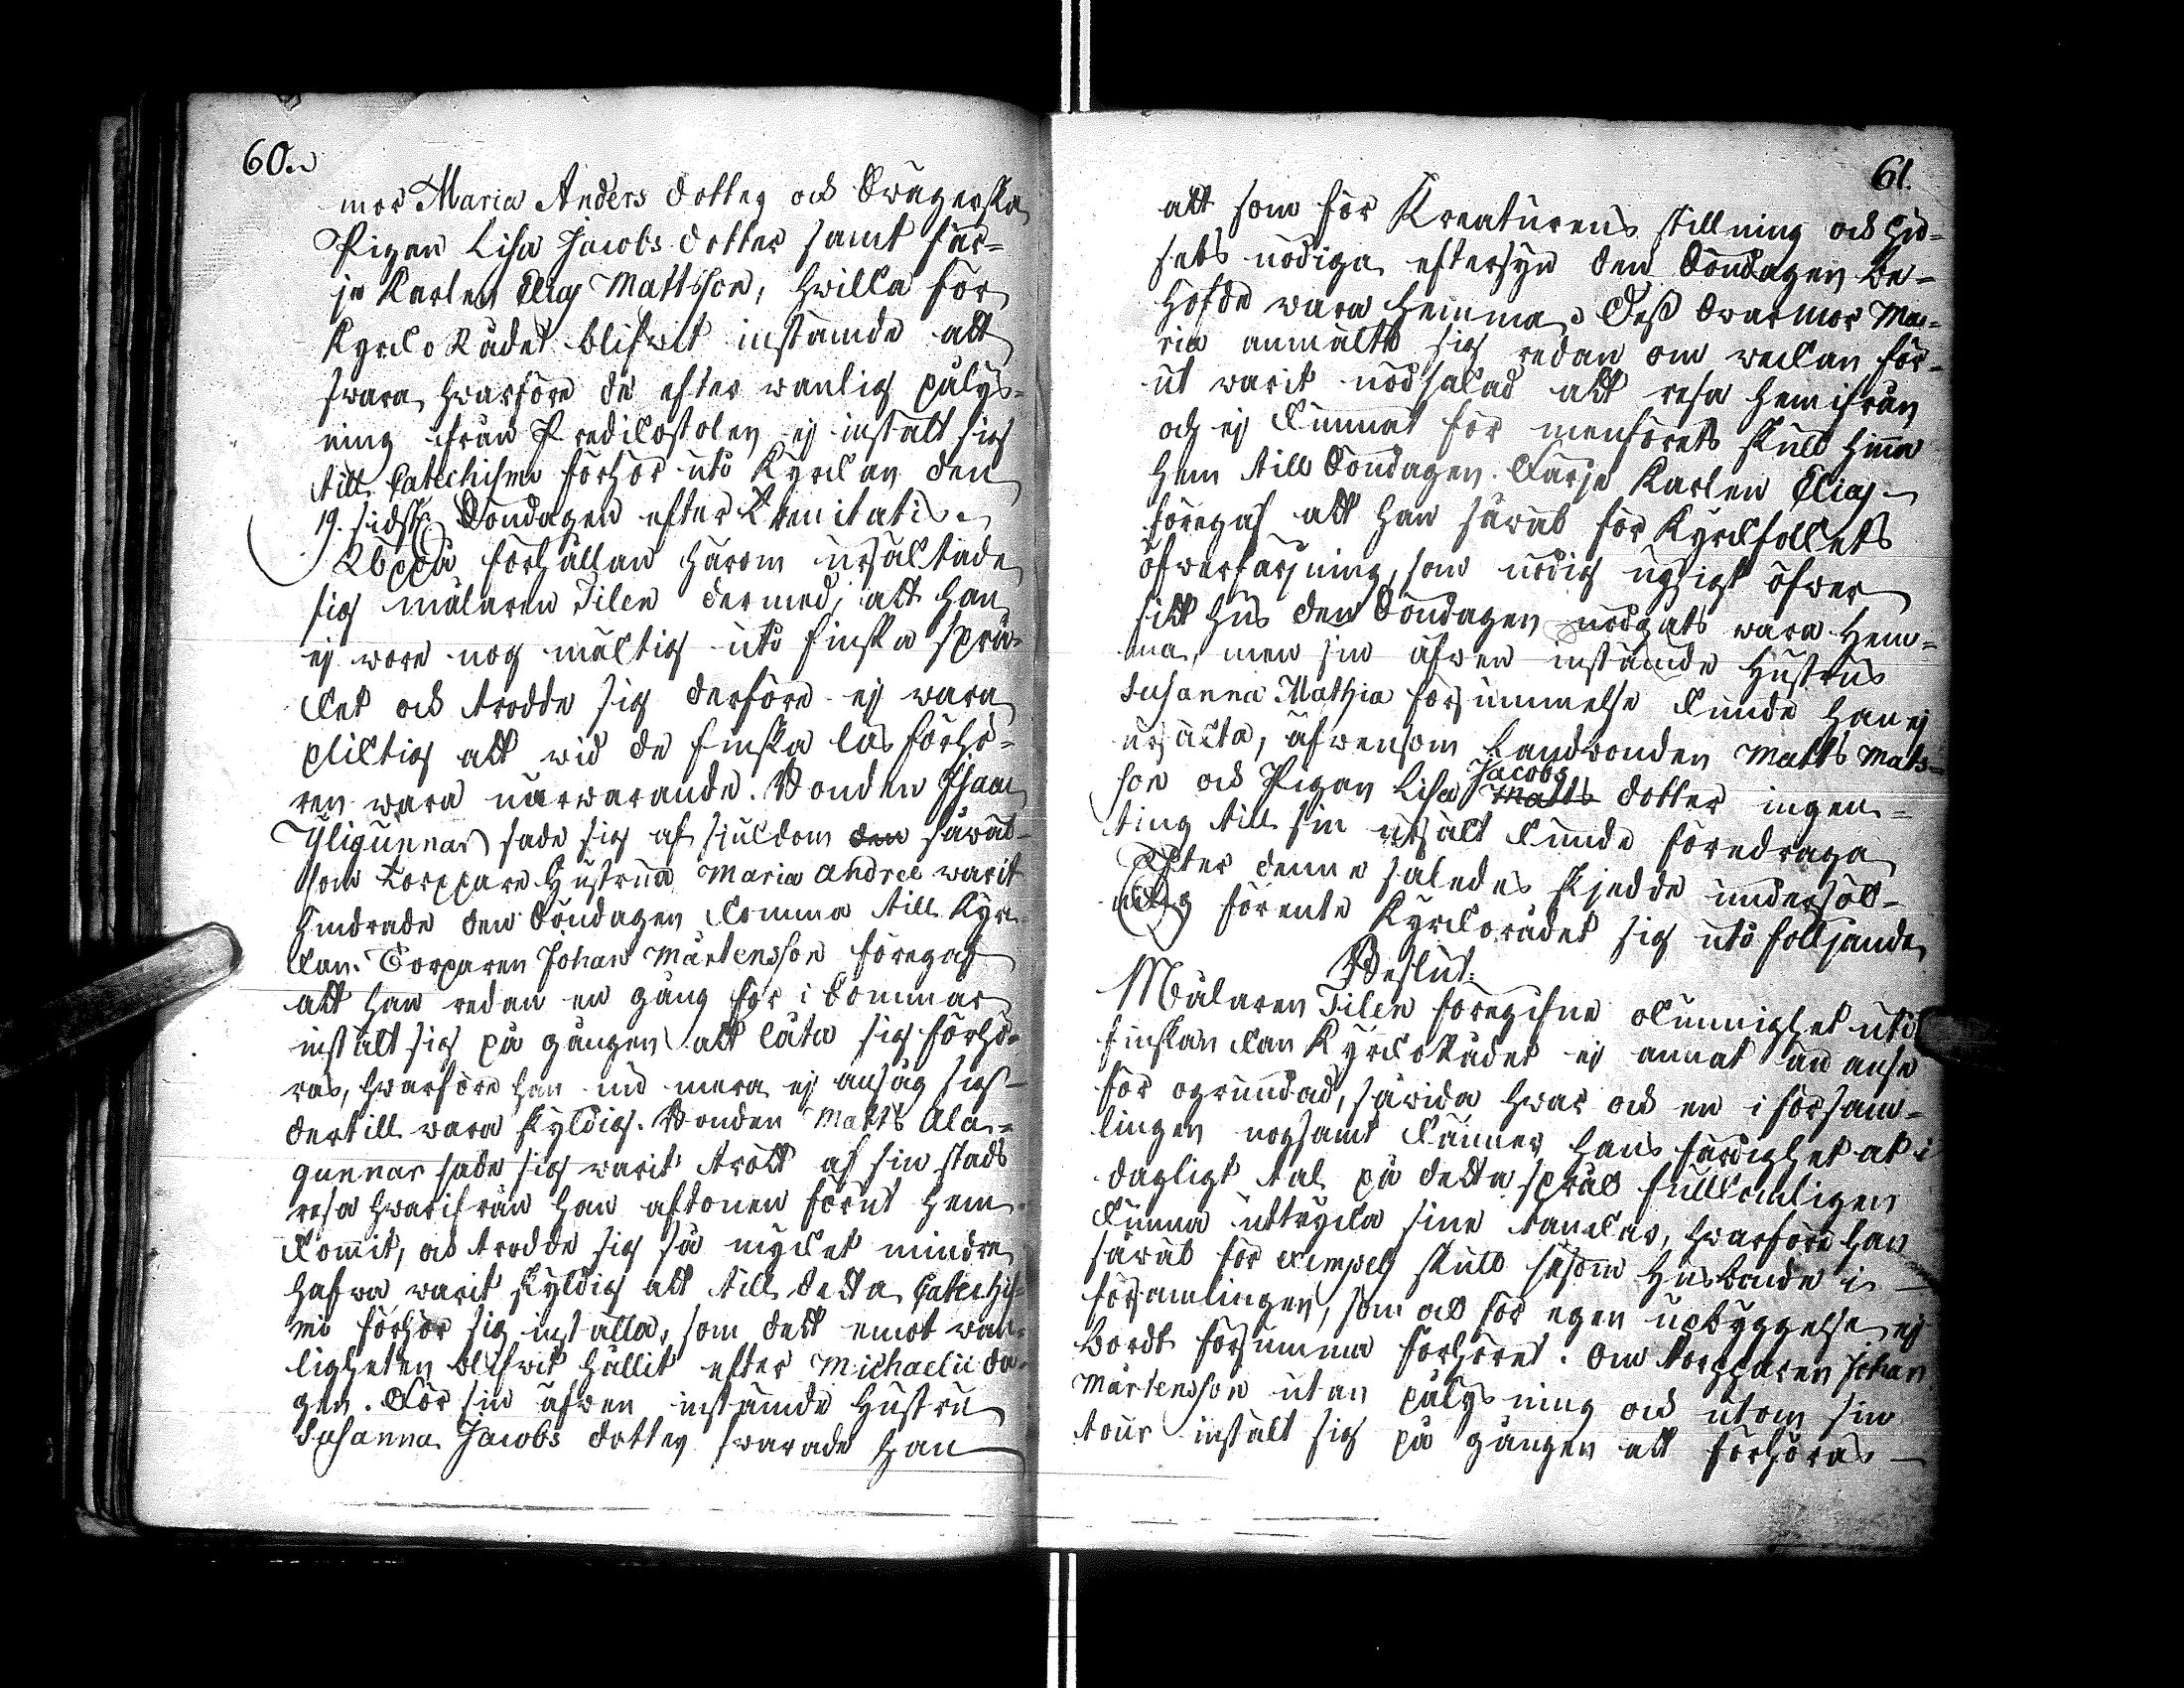 60.
mor Maria Anders dotter och Swägerska
Pigan Lisa Jacobs dotter samt fär-
je Karlen Elias Mattsson, hwilka för
Kyrcko Rådet blifwit instämde att
swara, hwarföre de efter wanlig pålys-
ning ifrån Predikostolen ej instält sig
till Catechismi förhör uti Kyrckan den
19. sidst. Söndagen efter Trinitatis.
Uppå förhållan härom ursäktade
sig målaren Tilen dermed, att han
ej wore nog mäktig uti finska språ-
ket och trodde sig derföre ej wara
pliktig att wid de finska läs förhö-
ren wara närwarande. Bonden Isaac
Yligunnar sade sig af sjukdom den såwäl
som Torppare Hustrun Maria Andree warit
hindrade den Söndagen komma till Kyr-
kan. Torparen Johan Mårtensson föregaf
att han redan en gång för i Sommar
instält sig på gången att låta sig förhö-
ras, hwarföre han nu mera ej ansåg sig
dertill wara skyldig. Bonden Matts Ala-
gunnar sade sig warit trött af sin stads
resa hwarifrån han aftonen förut hem
kommit, och trodde sig så mycket mindre
hafwa warit skyldig att till detta Catechis-
mi förhör sig inställa, som dett emot wan-
ligheten blifwit hållit efter Michaelii da-
gen. För sin äfwen instämde Hustru
Susanna Jacobs dotter swarade han
61.
att som för Kreaturens skillning och hu-
sets nödiga eftersyn den Söndagen be-
höfde wara hemma. Dess Swärmor Ma-
ria anmälte sig redan om weckan för-
ut warit nödsakad att resa hemifrån
och ej kunnat för menförets skull hinna
hem till Söndagen. Färje Karlen Elias
föregaf att han såwäl för Kyrckfolkets
öfwerfärjning, som nödig upsigt öfwer
sitt hus den Söndagen nödgats wara hem-
ma, men sin äfwen instämde Hustrus
Susanna Mathiæ försummelse kunde han ej
ursäkta, äfwensom Landbonden Matts Mats-
son och Pigan Lisa Matts Jacobs dotter ingen-
ting till sin ursäkt kunde föredraga
Efter denne således skjedde undersök-
ning förente Kyrckorådet sig uti följande
Beslut:
Målaren Tilen föregifne okunnighet uti
finskan kan Kyrcko Rådet ej annat än anse
för ogrundad, såwida hwar och en i försam-
lingen nogsamt känner hans färdighet at i
dagligt tal på detta språk fullkomligen
kunna uttrycka sine tanckar, hwarföre han
såwäl för exempels skull såsom Husbonde i
församlingen, som ock för egen upbyggelse ej
bordt försumma förhöret. Om torpparen Johan
Mårtensson utan pålysning och utom sin
tour instält sig på gången att förhöras